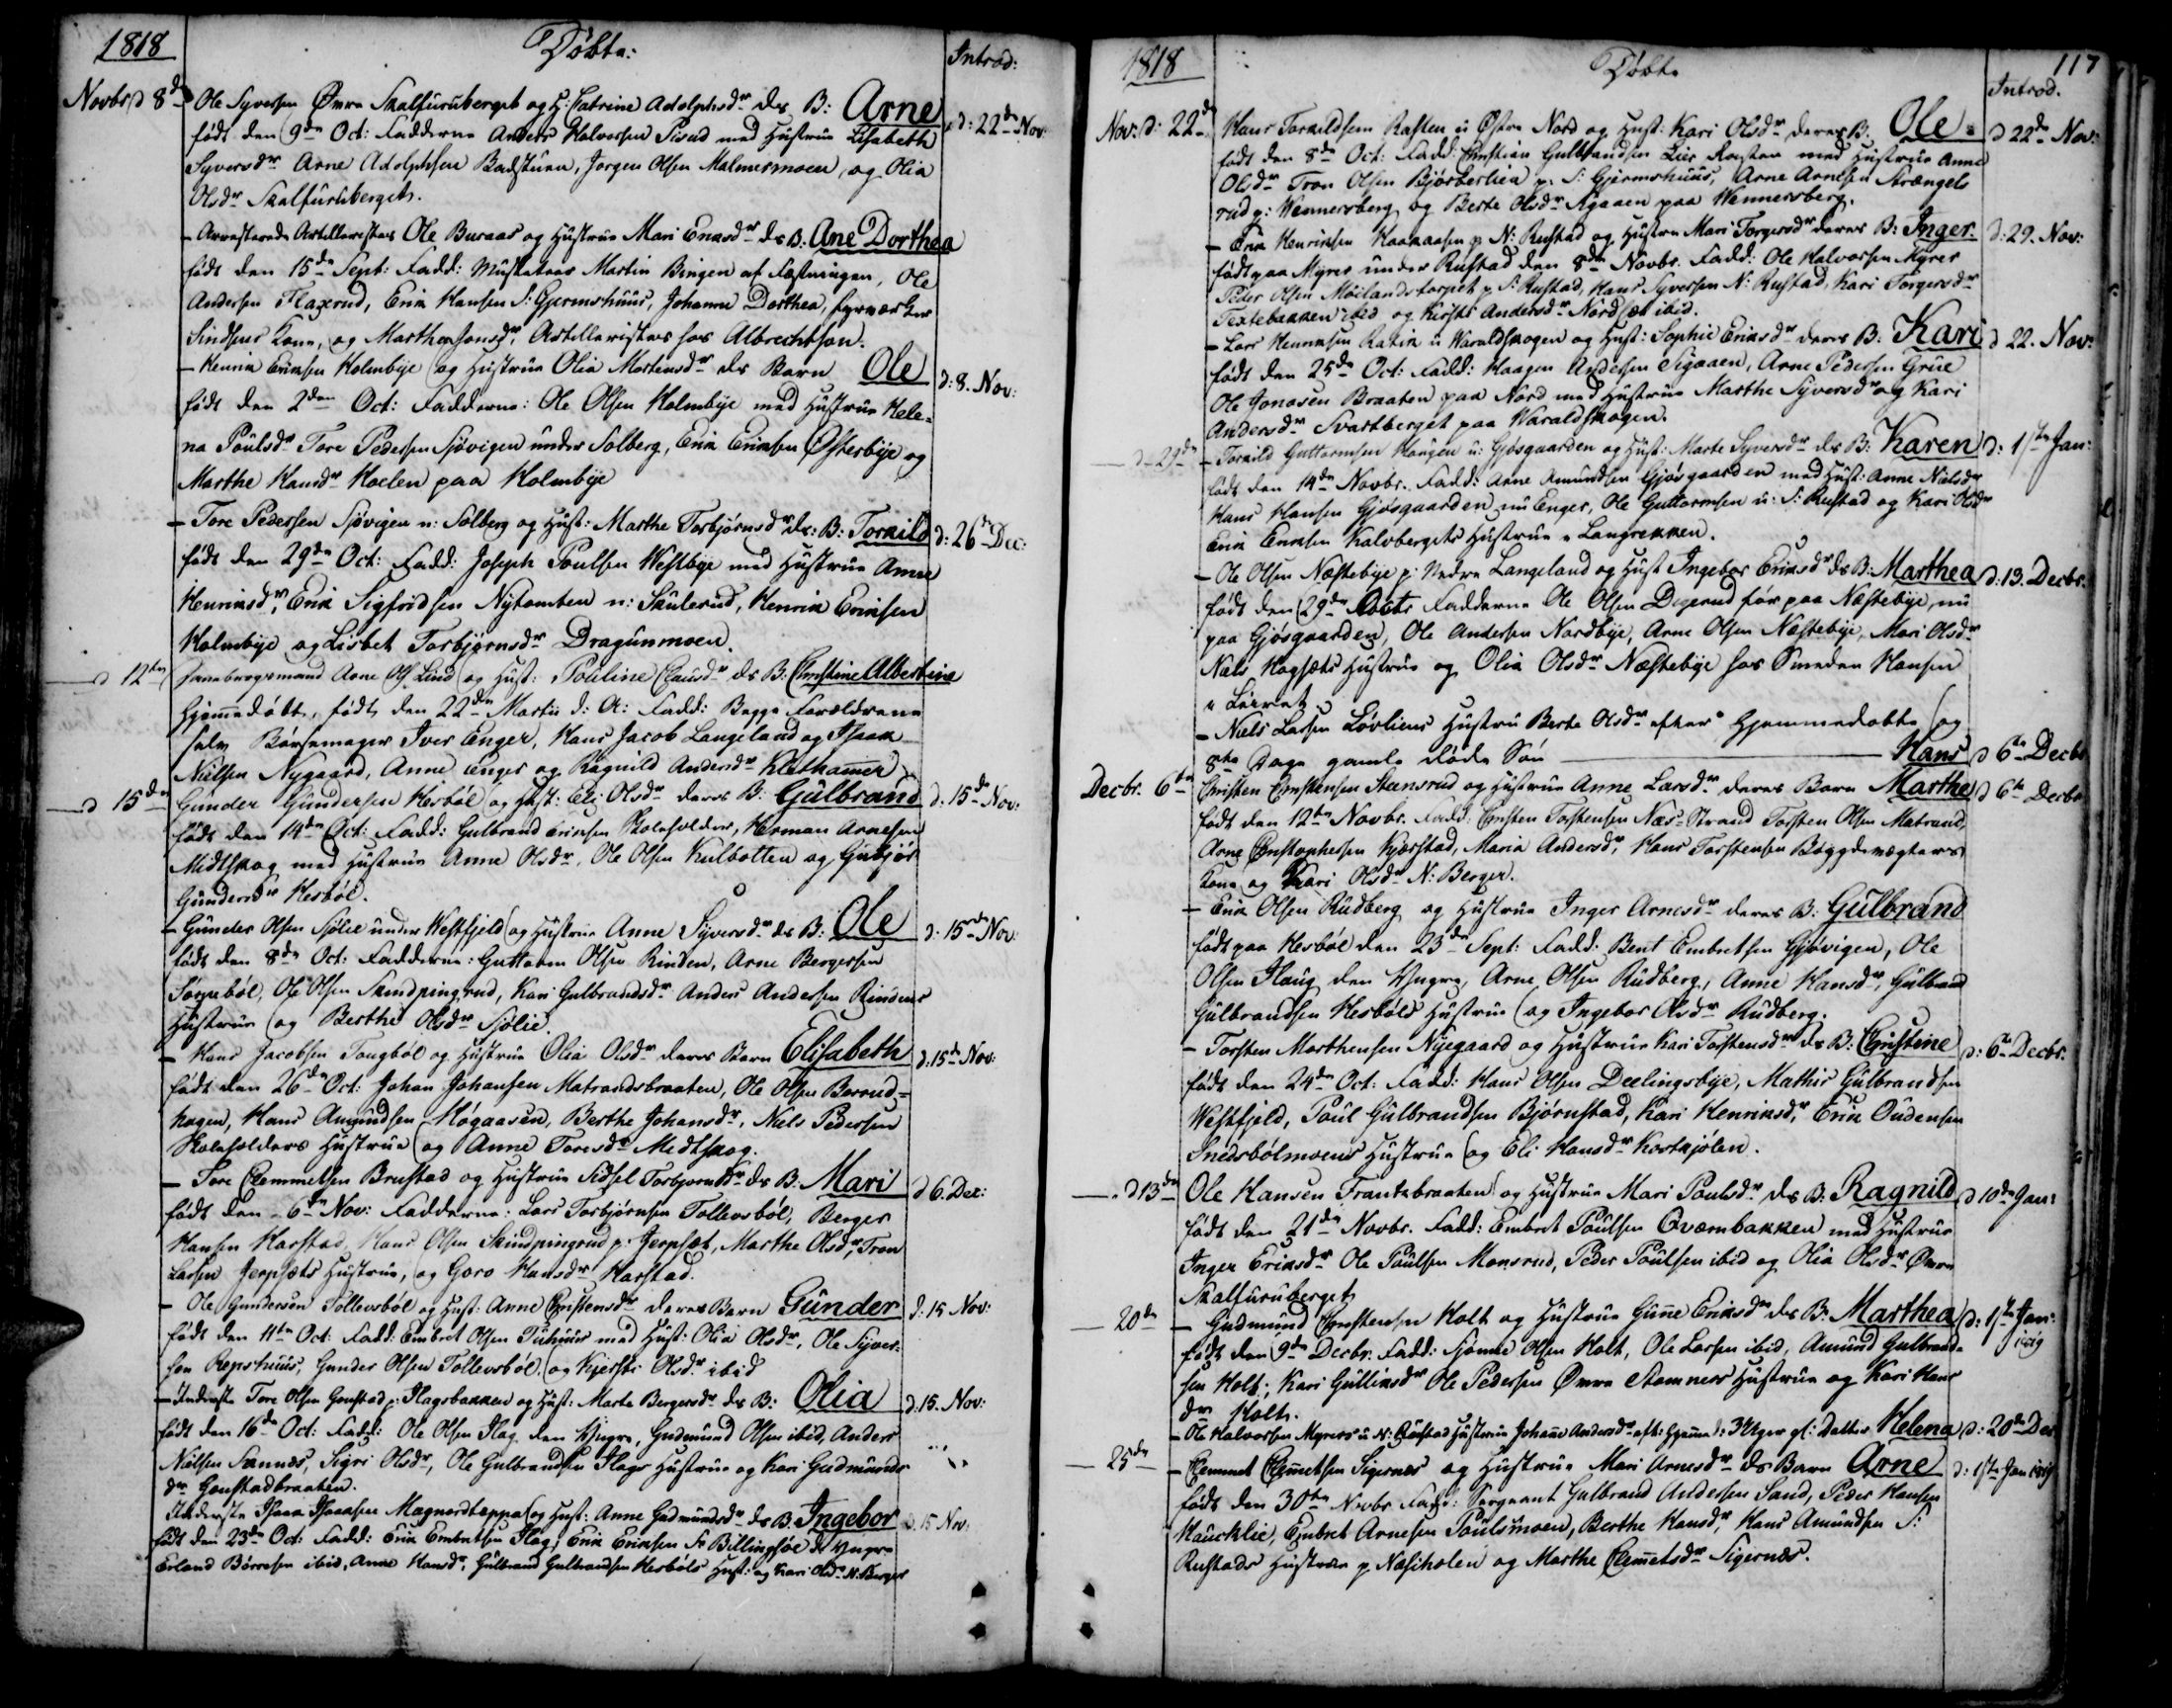 1818
Døbte:
Introd:
Novbr d 8de Ole Syversen Ømra Skalfuruberget og H: Catrine Adolphsdr ds B: Arne d: 22de Nov:
født den 9de Oct: Fadderne Anders Halvorsen Pisud med Hustrue Lisabeth
Syversdr Arne Adolphsen Badstuen, Jørgen Olsen Malmermoen, og Olia
Olsdr Skalfuruberget.
– Arresterede Artillerister Ole Buraas og Hustrue Mari Enersdr ds B: Ane Dorthea
født den 15de Sept: Fadd: Musketeer Martin Bingen af Fæstningen, Ole
Andersen Flaxrud, Erik Hansen S: Gjermshuus, Johanne Dorthea, Fyrværker
Lindseus Kone, og Marthe Jensdr, Artilleristes hos Albrechtson.
– Henrik Eriksen Holmbye og Hustrue Olia Mortensdr ds Barn Ole d: 8. Nov:
født den 2den Oct: Fadderne: Ole Olsen Holmbye med Hustrue Hele-
na Poulsdr Tore Pedersen Sjøvigen under Solberg, Erik Eriksen Østerbye og
Marthe Hansdr Haelen paa Holmbye
– Tore Pedersen Sjøvigen u: Solberg og Hust: Marthe Torbjørnsdr ds: B: Torkild d: 26de Dec:
født den 29de Oct: Fadd: Joseph Poulsen Westbye med Hustrue Anne
Henriksdr, Erik Sigfridsen Nytomten u: Skulerud, Henrik Eriksen
Holmbye og Lisbet Torbjørnsdr Dragunmoen.
d 12te Danebrogsmand Arne Ols: Lind og Hust: Pouline Clausdr ds B: Christine Albertine
Hjemmedøbt, født den 22de Martii d: A: Fadd: Begge Forældrene
selv Børsemager Iver Enger, Hans Jacob Langeland og Isaak
Nielsen Nygaard, Anne Enger og Ragnild Andersdr Klethammer
d 15de Gunder Gundersen Hesbøl og Hust: Eli Olsdr deres B: Gulbrand d: 15de Nov:
født den 14de Oct: Fadd: Gulbrand Eriksen Skoleholder, Herman Arnesen
Midtskog med Hustrue Anne Olsdr, Ole Olsen Kulbotten og Gubjør
Gundersdr Hesbøl.
– Gunder Olsen Sjølie under Westfjeld og Hustrue Anne Syversdr ds B: Ole d: 15de Nov:
født den 8de Oct: Fadderne: Guttorm Olsen Rinden, Arne Bergersen
Sørpebøl, Ole Olsen Skindpingrud, Kari Gulbrandsdr Anders Andersen Rindens
Hustrue og Berthe Olsdr Sjølie.
– Hans Jacobsen Tougbøl og Hustrue Olia Olsdr deres Barn Elisabeth d: 15de Nov:
født den 26de Oct: Johan Johansen Matrandsbraaten, Ole Olsen Berrud-
hagen, Hans Amundsen Høgaasen, Berthe Johansdr, Niels Pedersen
Skoleholders Hustrue og Anne Toresdr Midtskog.
– Tore Clemmetsen Brustad og Hustrue Sidsel Torbjørnsdr ds B: Mari d 6. Dec:
født den 6te Nov: Fadderne: Lars Torbjørnsen Tollevsbøl, Berger
Hansen Harstad, Hans Olsen Skindpingrud p: Jerpset, Marthe Olsdr, Tron
Larsen Jerpsets Hustrue, og Goro Hansdr Harstad.
– Ole Gundersen Tollevsbøl og Hust: Anne Christensdr deres Barn Gunder d: 15 Nov:
født den 11te Oct: Fadd: Embret Olsen Tuhuus med Hust: Olia Olsdr, Ole Syver-
sen Repshuus, Gunder Olsen Tollevsbøl og Kjersti Olsdr ibid
– Inderste Tore Olsen Gonstad p: Flagsbakken og Hust: Marte Bergersdr ds B: Olia d: 15. Nov:
født den 16de Oct: Fadd: Ole Olsen Flag den Yngre, Gudmund Olsen ibid, Anders
Nielsen Sænnes, Sigri Olsdr, Ole Gulbrandsen Flags Hustrue og Kari Gudmunds-
dr Gonstadbraaten.
Inderste Isaac Isaacsen Magnordteppa og Hust: Anne Gudmundsdr ds B. Ingebor d. 15 Nov:
født den 23de Oct: Fadd: Erik Embretsen Flag, Erik Eriksen S: Billingsøe d: Yngre
Erland Børresen ibid, Anne Hansdr, Gulbrand Gulbrandsen Hesbøls Hust: og Kari Olsdr N: Berger
1818
Døbte
117
Introd.
Nov: d: 22de Hans Torkildsen Rasten u Østre Nord og Hust: Kari Olsdr deres B. Ole d 22de Nov:
født den 8de Oct: Fadd: Christian Gulbrandsen Lier Rasten med Hustrue Anne
Olsdr Tron Olsen Bjørberlien p: S: Gjermshuus, Arne Arnesen Strængels
rud p: Wennersberg og Berte Olsdr Agaaen paa Wennersberg.
– Erik Henriksen Kaakaasen p N: Rustad og Hustrue Mari Torgersdr deres B: Inger. d: 29. Nov:
født paa Myrer under Rustad den 8de Novbr. Fadd: Ole Halvorsen Myrer
Peder Olsen Møilandstorpet p S: Rustad, Hans Syversen N: Rustad, Kari Torgersdr
Textebakken ibid og Kirsti Andersdr Nordset ibid.
– Lars Henriksen Ratik u Waraldskogen og Hust: Sophie Eriksdr deres B. Kari d 22. Nov:
født den 25de Oct: Fadd: Haagen Andersen Sigaaen, Arne Pedersen Grue
Ole Jonasen Braaten paa Nord med Hustrue Marthe Syversdr og Kari
Andersdr Svartberget paa Waraldskogen.
d 29de – Torkild Guttormsen Haugen u: Gjøsgaarden og Hust: Marte Syversdr ds B: Karen d: 1ste Jan:
født den 14de Novbr. Fadd: Arne Amundsen Gjøsgaarden med Hust: Anne Nielsdr
Hans Hansen Gjøsgaarden nu Enger, Ole Guttormsen u: S: Rustad og Kari Olsdr
Erik Eriksen Kalvbergets Hustrue u Langrekken.
– Ole Olsen Næstebye p: Nedre Langeland og Hust Ingebor Eriksdr ds B: Marthea d: 13. Decbr:
født den 29de Octb Fadderne Ole Olsen Degerud før paa Næstebye, nu
paa Gjøsgaarden, Ole Andersen Nordbye, Arne Olsen Næstebye, Mari Olsdr
Niels Hogsæts Hustrue og Olia Olsdr Næstebye hos Smeden Hansen
u Leiret
– Niels Larsen Løvliens Hustru Berte Olsdr efter Hjemmedøbte og
8te Dage gamle døde Søn Hans d 6te Decbr
Decbr. 6te Christen Christensen Steensrud og Hustrue Anne Larsdr deres Barn Marthe d 6te Decbr
født den 12te Novbr. Fadd: Christen Torstensen Næs-Strand Torsten Olsen Matrand,
Arne Christophersen Kjerstad, Maria Andersdr, Hans Torstensen Bøygdvægters
Kone og Kari Olsdr N: Berger.
– Erik Olsen Rudberg og Hustrue Inger Arnesdr deres B: Gulbrand
født paa Hesbøl den 23de Sept: Fadd: Bent Embretsen Gjøvigen, Ole
Olsen Haug den Yngre, Arne Olsen Rudberg, Anne Hansdr, Gulbrand
Gulbrandsen Hesbøls Hustrue og Ingebor Olsdr Rudberg.
– Torsten Marthensen Nyegaard og Hustrue Kari Torstensdr ds B: Christine d: 6te Decbr.
født den 24de Oct: Fadd: Hans Olsen Deelingsbye, Mathis Gulbrandsen
Westfjeld, Poul Gulbrandsen Bjørnstad, Kari Henriksdr, Erik Oudensen
Snedsbølmoens Hustrue og Eli Hansdr Kortkjølen.
d 13de Ole Hansen Frantzbraaten og Hustrue Mari Poulsdr ds B: Ragnild d 10de Jan:
født den 21de Novbr. Fadd: Embret Poulsen Qværnbakken med Hustrue
Inger Eriksdr Ole Poulsen Monsrud, Peder Poulsen ibid og Olia Olsdr Ømra
Skalfuruberget
20de – Gudmund Christensen Holt og Hustrue Gunne Eriksdr ds B: Marthea d: 1ste Jan:
1819
født den 9de Decbr. Fadd: Sjønne Olsen Holt, Ole Larsen ibid, Amund Gulbrand-
sen Holt, Kari Gulliksdr Ole Pedersen Ømra Stamnes Hustrue og Kari Hans
dr Holt.
– Ole Halvorsen Myrers u N: Rustad Hustrue Johanne Andersdr eft: Hjemmed: 3 Uger gl: Datter Helena d: 20de Dec
25de – Clemmet Clemmetsen Sigernes og Hustrue Mari Arnesdr ds Barn Arne d: 1ste Jan 1819
født den 30te Novbr Fadd: Sergeant Gulbrand Andersen Sand, Peder Hansen
Haucklie, Embret Arnesen Poulsmoen, Berthe Hansdr, Hans Amundsen S:
Rustads Hustrue p. Næsiholen og Marthe Clemmetsdr Sigernes.